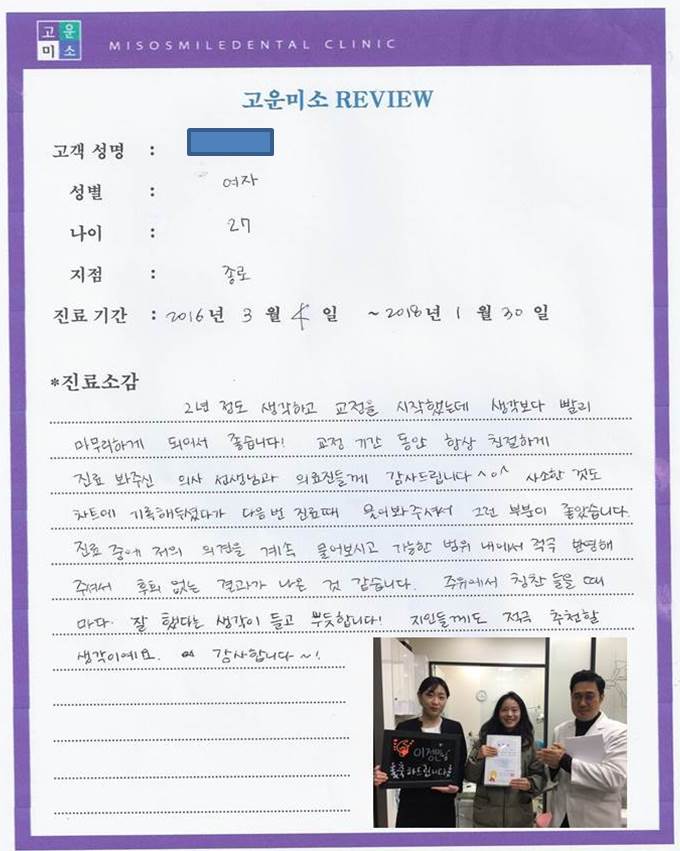 고운
미소
MISOSMILEDENTAL CLINIC
고운미소 REVIEW
고객 성명 :
성별 : 여자
나이 : 27
지점 : 종로
진료 기간 : 2016년 3월 4일 ~2018년 1월 30일
*진료소감
2년 정도 생각하고 교정을 시작했는데 생각보다 빨리
마무리하게 되어서 좋습니다! 교정 기간 동안 항상 친절하게
진료 봐주신 의사 선생님과 의료진들께 감사드립니다^o^ 사소한 것도
차트에 기록해두셨다가 다음번 진료때 물어봐주셔서 그런 부분이 좋았습니다.
진료 중에 저의 의견을 계속 물어보시고 가능한 범위 내에서 적극 반영해
주셔서 후회 없는 결과가 나온 것 같습니다. 주위에서 칭찬 들을 때
마다 잘 했다는 생각이 들고 뿌듯합니다! 지인들께도 적극 추천할
생각이에요. 감사합니다~!
이정민님
축하드립니다!